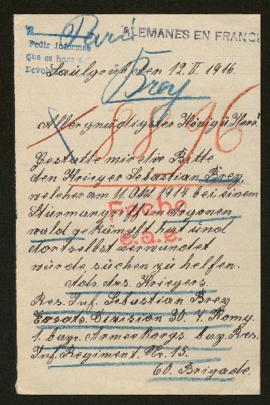 A París
ALEMANES EN FRANCIA
Pedir informes
que se hace
Devol
Saulgrub, den 12. II. 1916.
Brey
88 96
Allergnädigster König u. Herr!
Gestatte mir die Bitte
den Krieger Sebastian Brey,
welcher am 11. Okt. 1914 bei einem
Sturmangriff im Argonen
wald gekämpft hat und
dortselbst verwundet
würde suchen zu helfen.
Adr. des Kriegers.
Fecho
e.s.e.
Res. Inf. Sebastian Brey
Ersatz Division 30. 7. Komp.
1. bayr. Armeekorps. bay. Res.
Inf. Regiment. Nr. 15.
60. Brigade.